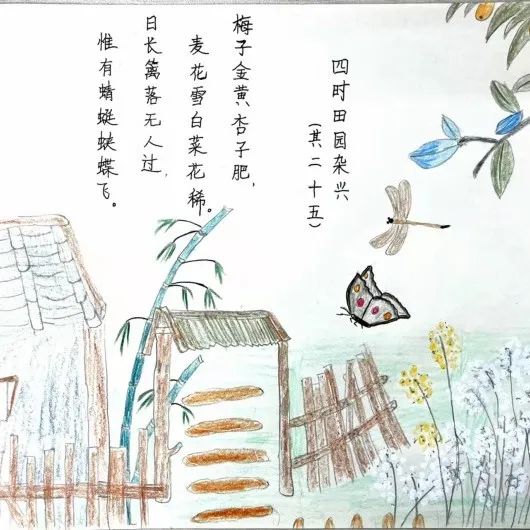 四时田园杂兴
(其二十五)
梅子金黄杏子肥,
麦花雪白菜花稀。
日长篱落无人过,
惟有蜻蜓蛱蝶飞。